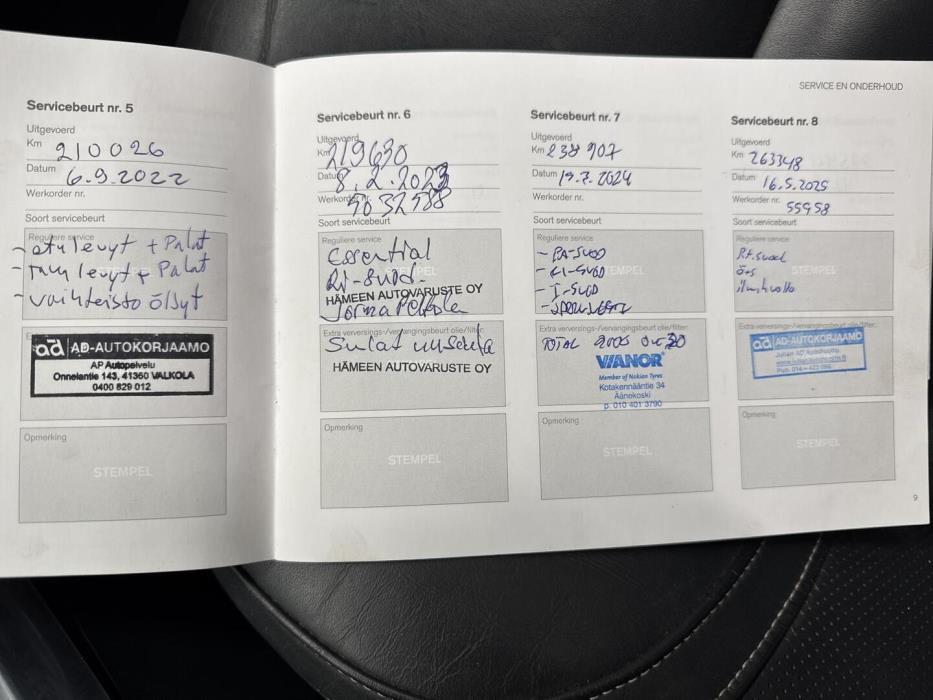 SERVICE EN ONDERHOUD
Servicebeurt nr. 5
Uitgevoerd
Km 210026
Datum 6.9.2022
Werkorder nr.
Soort servicebeurt
Reguliere service
- etu levyt + Palat
- taka levyt + Palat
- vaihteisto öljyt
ad AD-AUTOKORJAAMO
AP Autopalvelu
Onnelantie 143, 41360 VALKOLA
0400 829 012
Opmerking
STEMPEL
Servicebeurt nr. 6
Uitgevoerd
Km 219630
Datum 8.2.2023
Werkorder nr. 9032988
Soort servicebeurt
Reguliere service
Essential
STEMPEL
HÄMEEN AUTOVARUSTE OY
Extra verversings-/vervangingsbeurt olie/filter:
Sulat
HÄMEEN AUTOVARUSTE OY
Opmerking
STEMPEL
Servicebeurt nr. 7
Uitgevoerd
Km 238907
Datum 19.7.2024
Werkorder nr.
Soort servicebeurt
Reguliere service
STEMPEL
- RA-SUOD
- KI-SUOD
- I-SUOD
Extra verversings-/vervangingsbeurt olie/filter:
TOTAL 9000 0W30
VIANOR
Member of Nokian Tyres
Kotakennääntie 34
Äänekoski
p. 010 401 3790
Opmerking
STEMPEL
Servicebeurt nr. 8
Uitgevoerd
Km 263348
Datum 16.5.2025
Werkorder nr. 55958
Soort servicebeurt
Reguliere service
STEMPEL
Extra verversings-/vervangingsbeurt olie/filter:
ad AD-AUTOKORJAAMO
Opmerking
STEMPEL
9